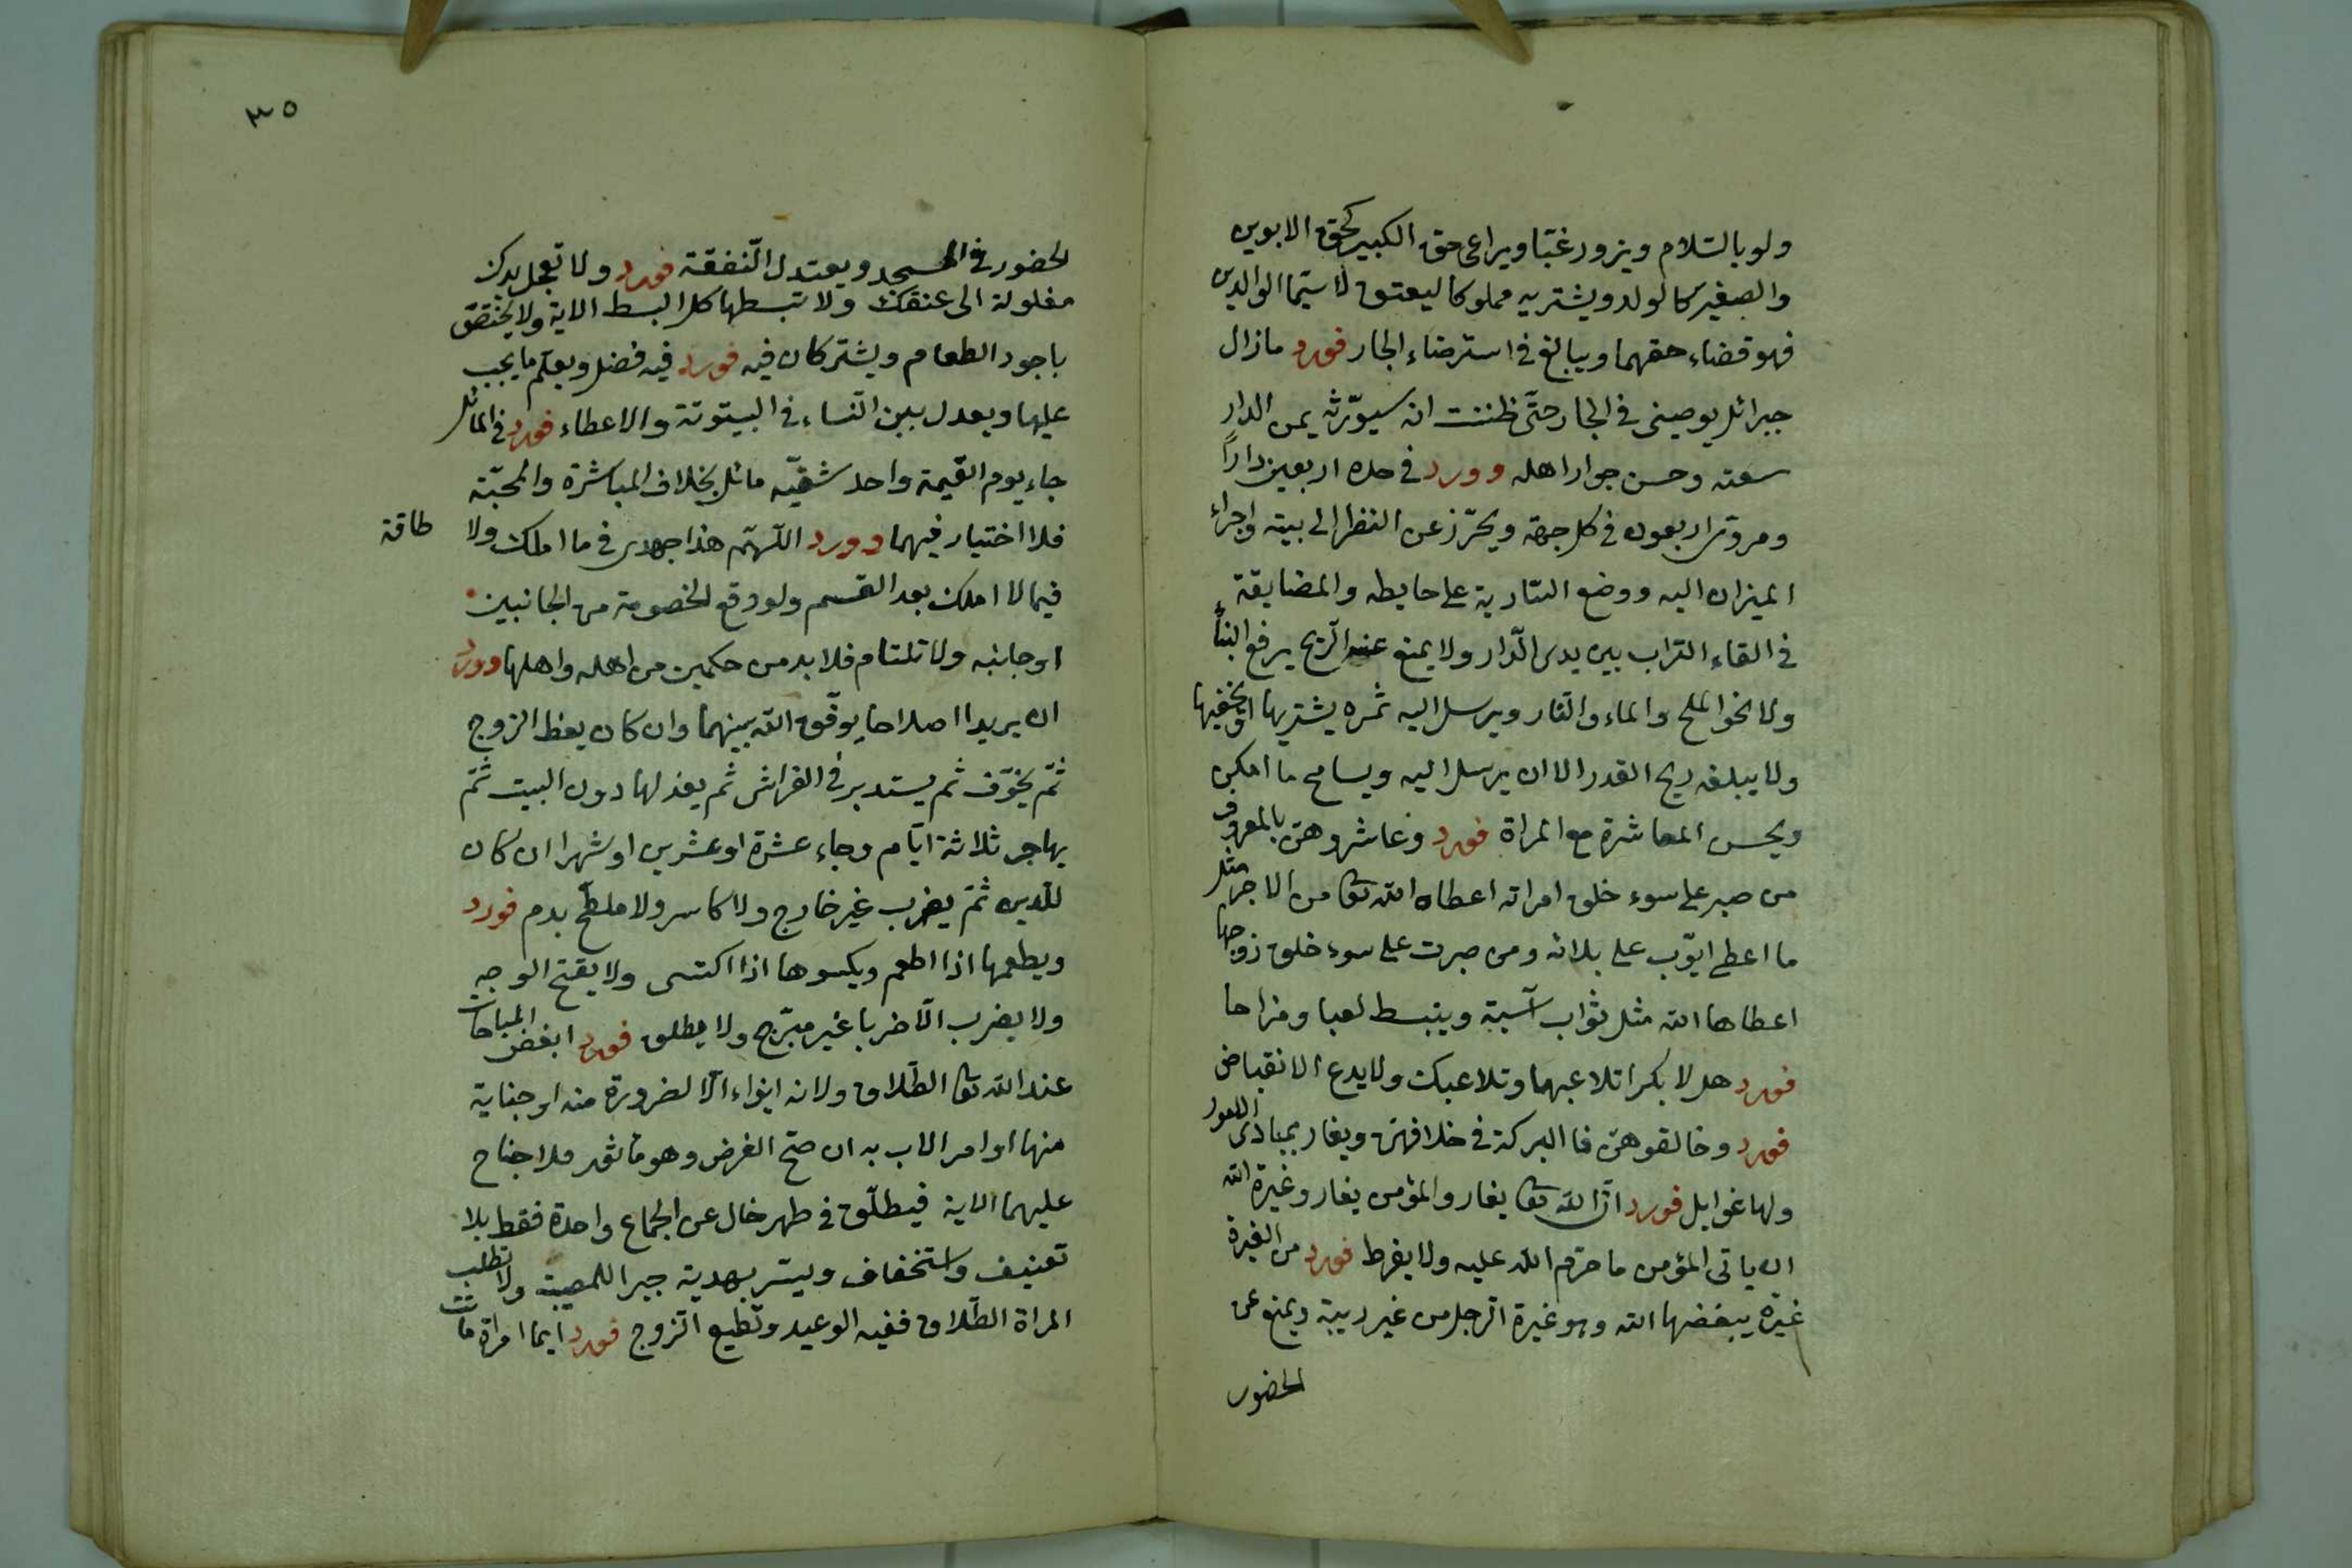 ولو بالسّلام ويزور غبّا ويراعى حق الكبير كحق الابوين
والصغير كالولد ويشتريه مملوكا ليعتق لا سيّما الوالدين
فهو قضاء حقهما ويبالغ فى استرضاء الجار فورد مازال
جبرائل يوصينى فى الجار حتّى ظننت انه سيورّثه يمن الدار
سعته وحسن جوار اهله وورد فى حده اربعين داراً
ومروىّ اربعون فى كل جهة ويحترز عن النظر الى بيته واجراء
الميزاب اليه ووضع السّارية على حايطه والمضايقة
فى القاء التراب بين يدى الدّار ولا يمنع عنه الرّيح برفع البناء
ولا نحو الملح والماء والنار ويرسل اليه ثمره يشتريها او يخفيها
ولا يبلغه ريح القدر الا ان يرسل اليه ويسامح ما امكن
ويحسن المعاشرة مع المراة فورد وعاشروهنّ بالمعروف
من صبر على سوء خلق امراته اعطاه الله تعا من الاجر مثل
ما اعطى ايّوب على بلائه ومن صبرت على سوء خلق زوجها
اعطاها الله مثل ثواب آسية وينبسط لعبا ومزاحا
فورد هلا بكرا تلاعبها وتلاعبك ولا يدع الانقباض
فورد وخالقوهنّ فا البركة فى خلافهنّ ويغار بمبادى الامور
ولها غوايل فورد انّ الله تعا يغار والمؤمن يغار وغيرة الله
ان ياتى المؤمن ما حرّم الله عليه ولا يفرط فورد من الغيرة
غيرة يبغضها الله وهو غيرة الرّجل من غير ريبة ويمنع عن
الحضور
٣٥
الحضور فى المسجد ويعتدل النّفقة فورد ولا تجعل يدك
مغلولة الى عنقك ولا تبسطها كل البسط الاية ولا يختصّ
باجود الطعام ويشتركان فيه فورد فيه فضل ويعلّم ما يجب
عليها ويعدل بين النّساء فى البيتوتة والاعطاء فورد فى المائل
جاء يوم القيمة واحد شقّيه مائل بخلاف المباشرة والمحبّة
فلا اختيار فيهما وورد اللّهمّ هذا جهدى فى ما املك ولا طاقة
فيما لا املك بعد القسم ولو وقع الخصومة من الجانبين
او جانبه ولا تلتام فلا بد من حكمين من اهله واهلها وورد
ان يريدا اصلاحا يوفّق الله بينهما وان كان يعظ الزوج
ثمّ يخوّف ثم يستدبر فى الفراش ثم يعذلها دون البيت ثمّ
يهاجر ثلاثة ايّام وجاء عشرة او عشرين او شهرا ان كان
للدين ثمّ يضرب غير خارج ولا كاسر ولا ملطّخ بدم فورد
ويطعمها اذا اطعم ويكسوها اذا اكتسى ولا يقبّح الوجه
ولا يضرب الّا ضربا غير مبرّح ولا يطلق فورد ابغض المباحات
عند الله تعا الطّلاق ولانه ايذاء الّا لضرورة منه او جناية
منها او امر الاب به ان صحّ الغرض وهو مأثور فلا جناح
عليهما الاية فيطلّق فى طهر خال عن الجماع واحدة فقط بلا
تعنيف واستخفاف وليسّر بهدية جبرا للمصيبة ولا تطلب
المراة الطّلاق ففيه الوعيد وتطيع الزوج فورد ايما امراة ماتت